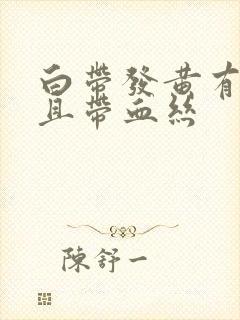 白帶發黃有
且帶血絲
陳舒一